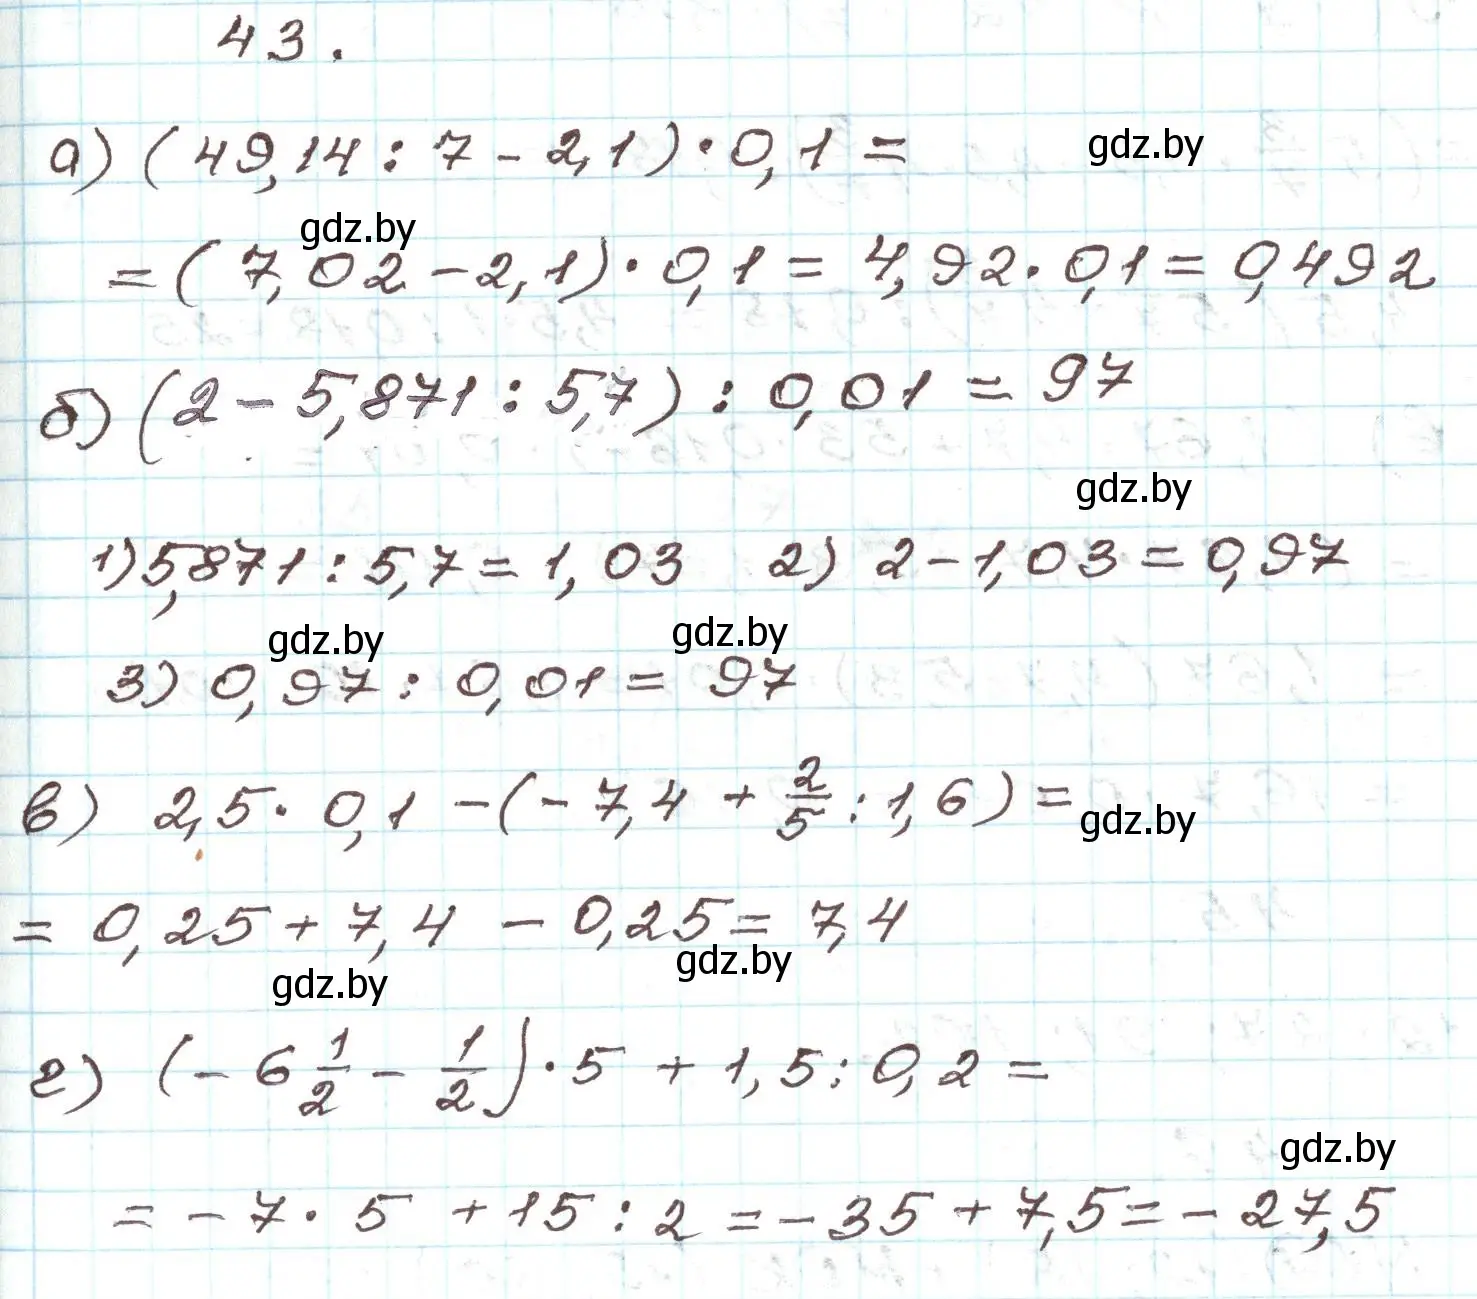 43.
а) (49,14 : 7 - 2,1) · 0,1 =
gdz.by
gdz.by
= (7,02 - 2,1) · 0,1 = 4,92 · 0,1 = 0,492
б) (2 - 5,871 : 5,7) : 0,01 = 97
gdz.by
1) 5,871 : 5,7 = 1,03   2) 2 - 1,03 = 0,97
gdz.by gdz.by
3) 0,97 : 0,01 = 97
в) 2,5 · 0,1 - (- 7,4 + 2/5 : 1,6) =
gdz.by
= 0,25 + 7,4 - 0,25 = 7,4
gdz.by gdz.by
г) (- 6 1/2 - 1/2) · 5 + 1,5 : 0,2 =
gdz.by
= - 7 · 5 + 15 : 2 = - 35 + 7,5 = - 27,5